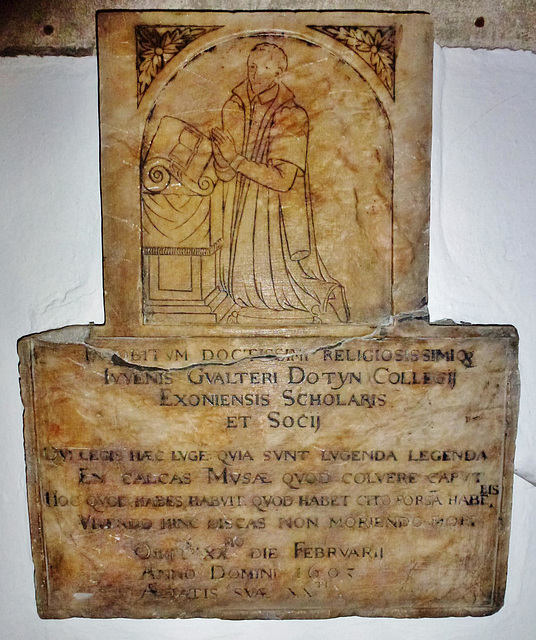 IN OBITVM DOCTISSIMI RELIGIOSISSIMIQ
IVVENIS GVALTERI DOTYN COLLEGIJ
EXONIENSIS SCHOLARIS
ET SOCIJ
QVI LEGIS HÆC LVGE QVIA SVNT LVGENDA LEGENDA
EN CALCAS MVSÆ QVOD COLVERE CAPVT
HOC QVOD HABES HABVIT QVOD HABET CITO FORSĀ HABELIS
VIVENDO HINC DISCAS NON MORIENDO MORI
OBIJT XX DIE FEBRVARIJ
ANNO DOMINI 1603
ÆTATIS SVÆ XX